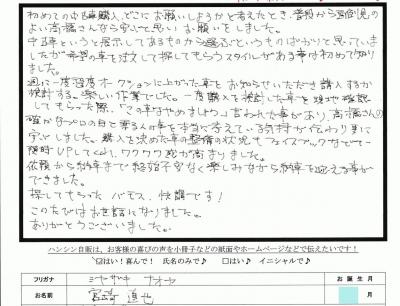 初めての中古車購入、どこにお願いしようかと考えたとき、普段から面倒見の
よい高橋さんなら安心と思いお願いをしました。
中古車というと展示してあるものから選ぶというものばかりと思っていま
したが希望の車を注文して探してもらうスタイルがある事は初めて知り
ました。
週に一度程度オークションに上がった車をお知らせいただき購入するか
検討する、楽しい作業でした。一度購入を検討した車を現地確認
してもらった際、「この車はやめましょう」と言われた事があり、高橋さんの
確かなプロの目と乗る人の事を本当に考えている気持が伝わり更に
安心しました。購入を決めた車の整備の状況もフェイスブックなどで
随時UPしてくれ、ワクワク感が高まりました。
依頼から納車まで終始不安なく楽しみながら納車を迎える事が
できました。
探してもらったバモス、快調です!
このたびはお世話になりました。
ありがとうございました。
ハンシン自販は、お客様の喜びの声を小冊子などの紙面やホームページなどで伝えたいです!
はい!喜んで! 氏名のみで♪ □はい♪ イニシャルで♪
フリガナ ミヤザキ ナオヤ お誕生月
お名前 宮崎 直也 月